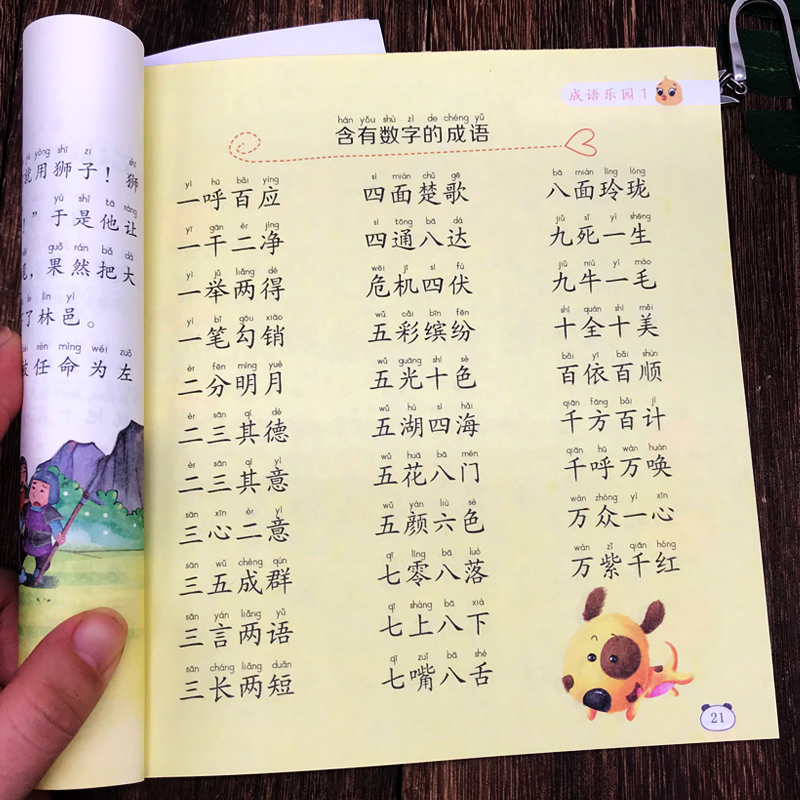 yòng shī zi shī
就用狮子！狮
yú shì tā ràng
！”于是他让
guǒ rán bǎ dà
，果然把大
le lín yì
了林邑。
rèn mìng wéi zuǒ
被任命为左
成语乐园1
hán yǒu shù zì de chéng yǔ
含有数字的成语
yì hū bǎi yìng
一呼百应
yī gān èr jìng
一干二净
yì jǔ liǎng dé
一举两得
yì bǐ gōu xiāo
一笔勾销
èr fēn míng yuè
二分明月
èr sān qí dé
二三其德
èr sān qí yì
二三其意
sān xīn èr yì
三心二意
sān wǔ chéng qún
三五成群
sān yán liǎng yǔ
三言两语
sān cháng liǎng duǎn
三长两短
sì miàn chǔ gē
四面楚歌
sì tōng bā dá
四通八达
wēi jī sì fú
危机四伏
wǔ cǎi bīn fēn
五彩缤纷
wǔ guāng shí sè
五光十色
wǔ hú sì hǎi
五湖四海
wǔ huā bā mén
五花八门
wǔ yán liù sè
五颜六色
qī líng bā luò
七零八落
qī shàng bā xià
七上八下
qī zuǐ bā shé
七嘴八舌
bā miàn líng lóng
八面玲珑
jiǔ sǐ yì shēng
九死一生
jiǔ niú yì máo
九牛一毛
shí quán shí měi
十全十美
bǎi yī bǎi shùn
百依百顺
qiān fāng bǎi jì
千方百计
qiān hū wàn huàn
千呼万唤
wàn zhòng yì xīn
万众一心
wàn zǐ qiān hóng
万紫千红
21